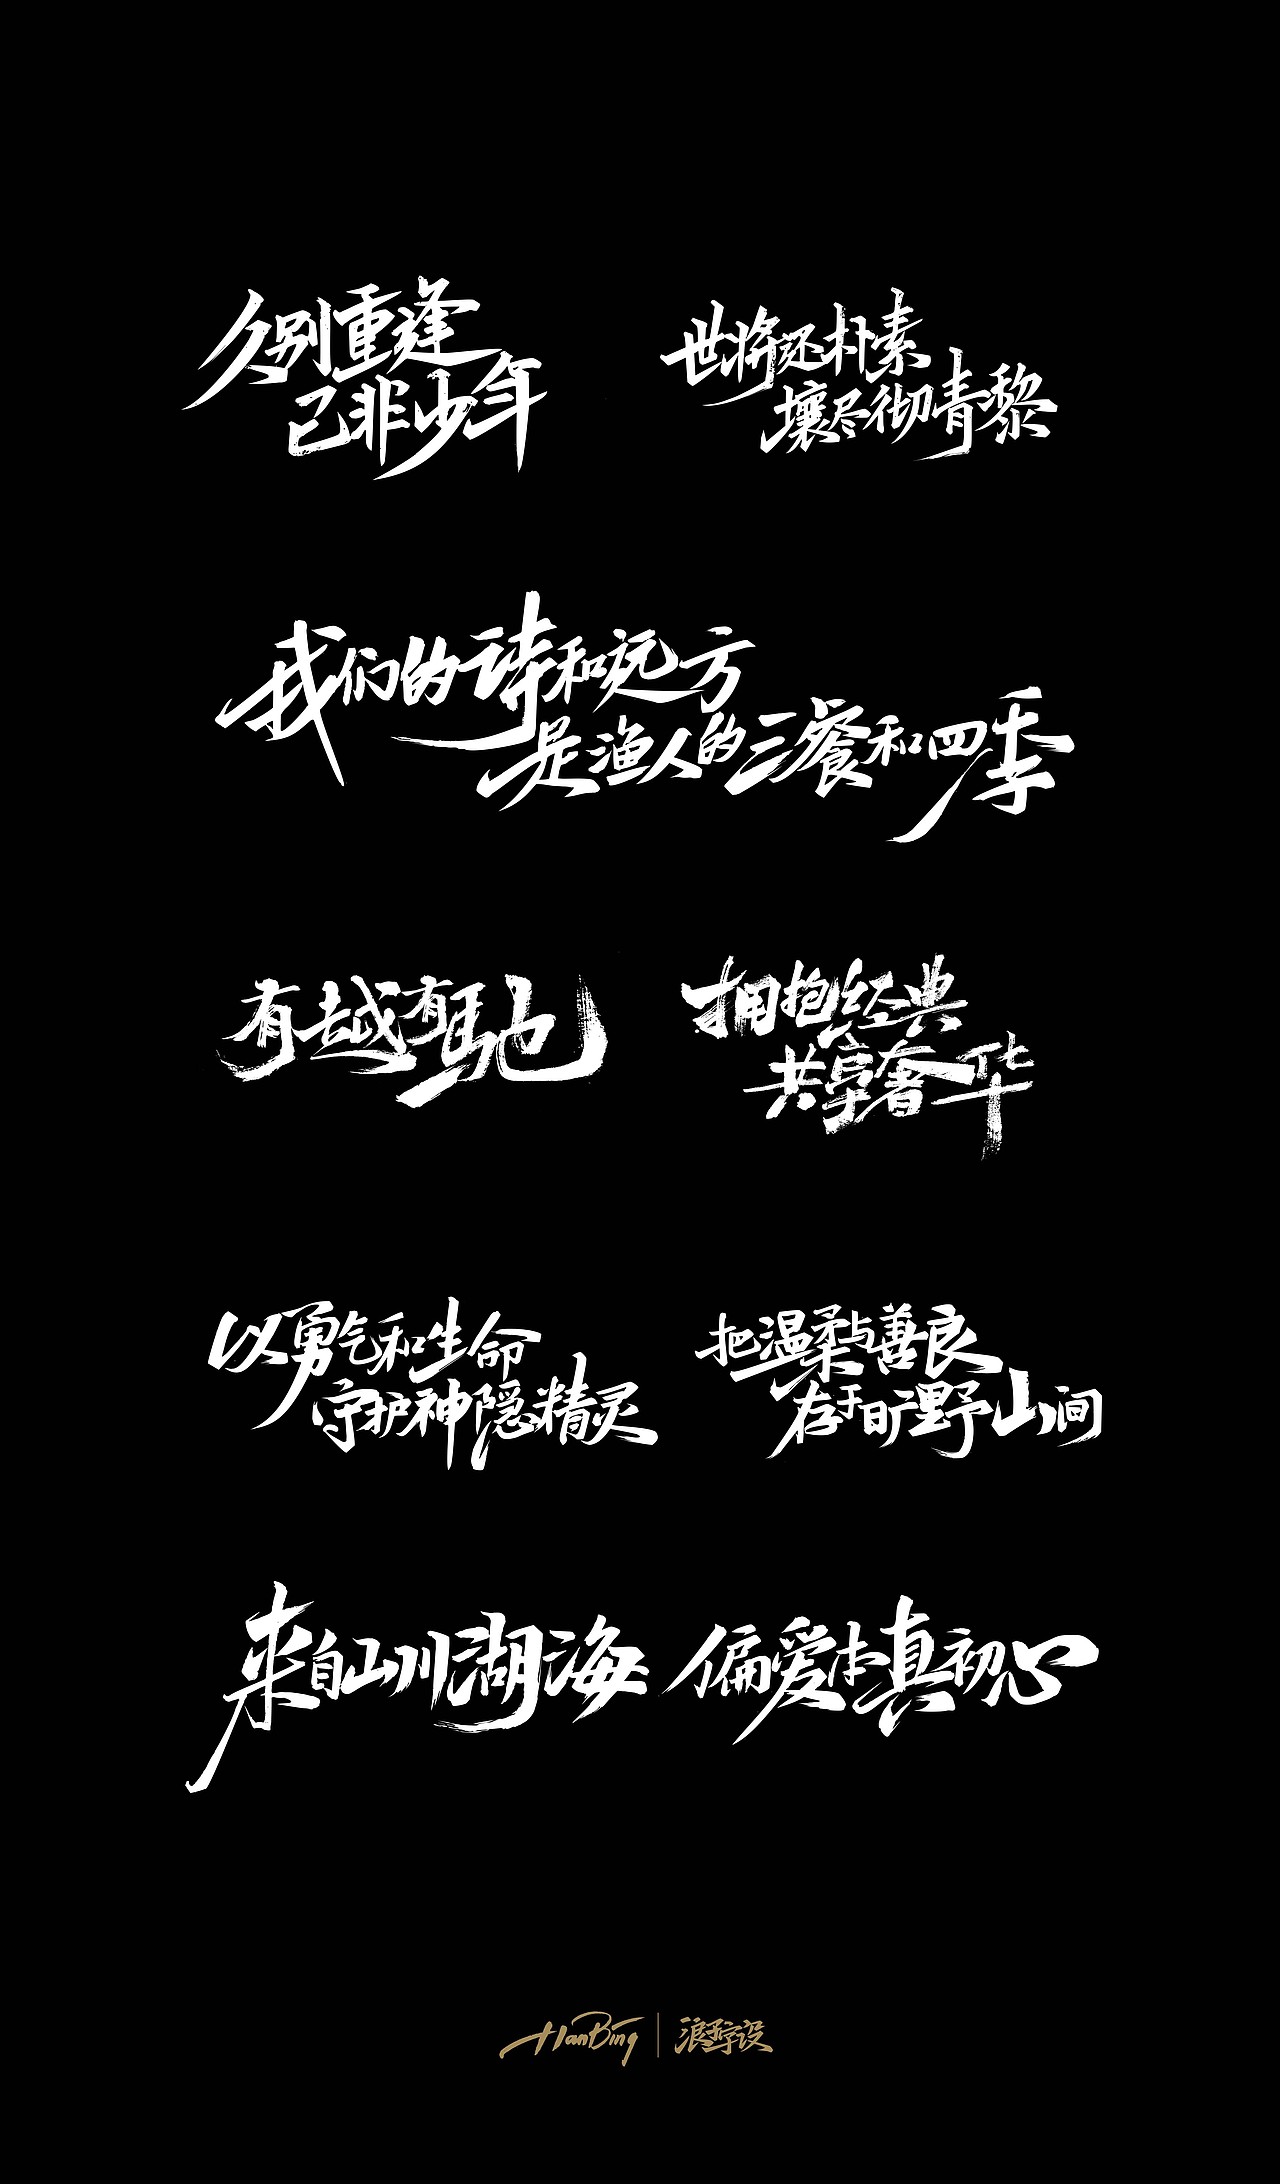 久别重逢
已非少年
世将还朴素
壤尽彻青黎
我们的诗和远方
是渔人的三餐和四季
有越有驰
拥抱经典
共享奢华
以勇气和生命
守护神隐精灵
把温柔与善良
存于旷野山间
来自山川湖海 偏爱本真初心
HanBing | 浪字设